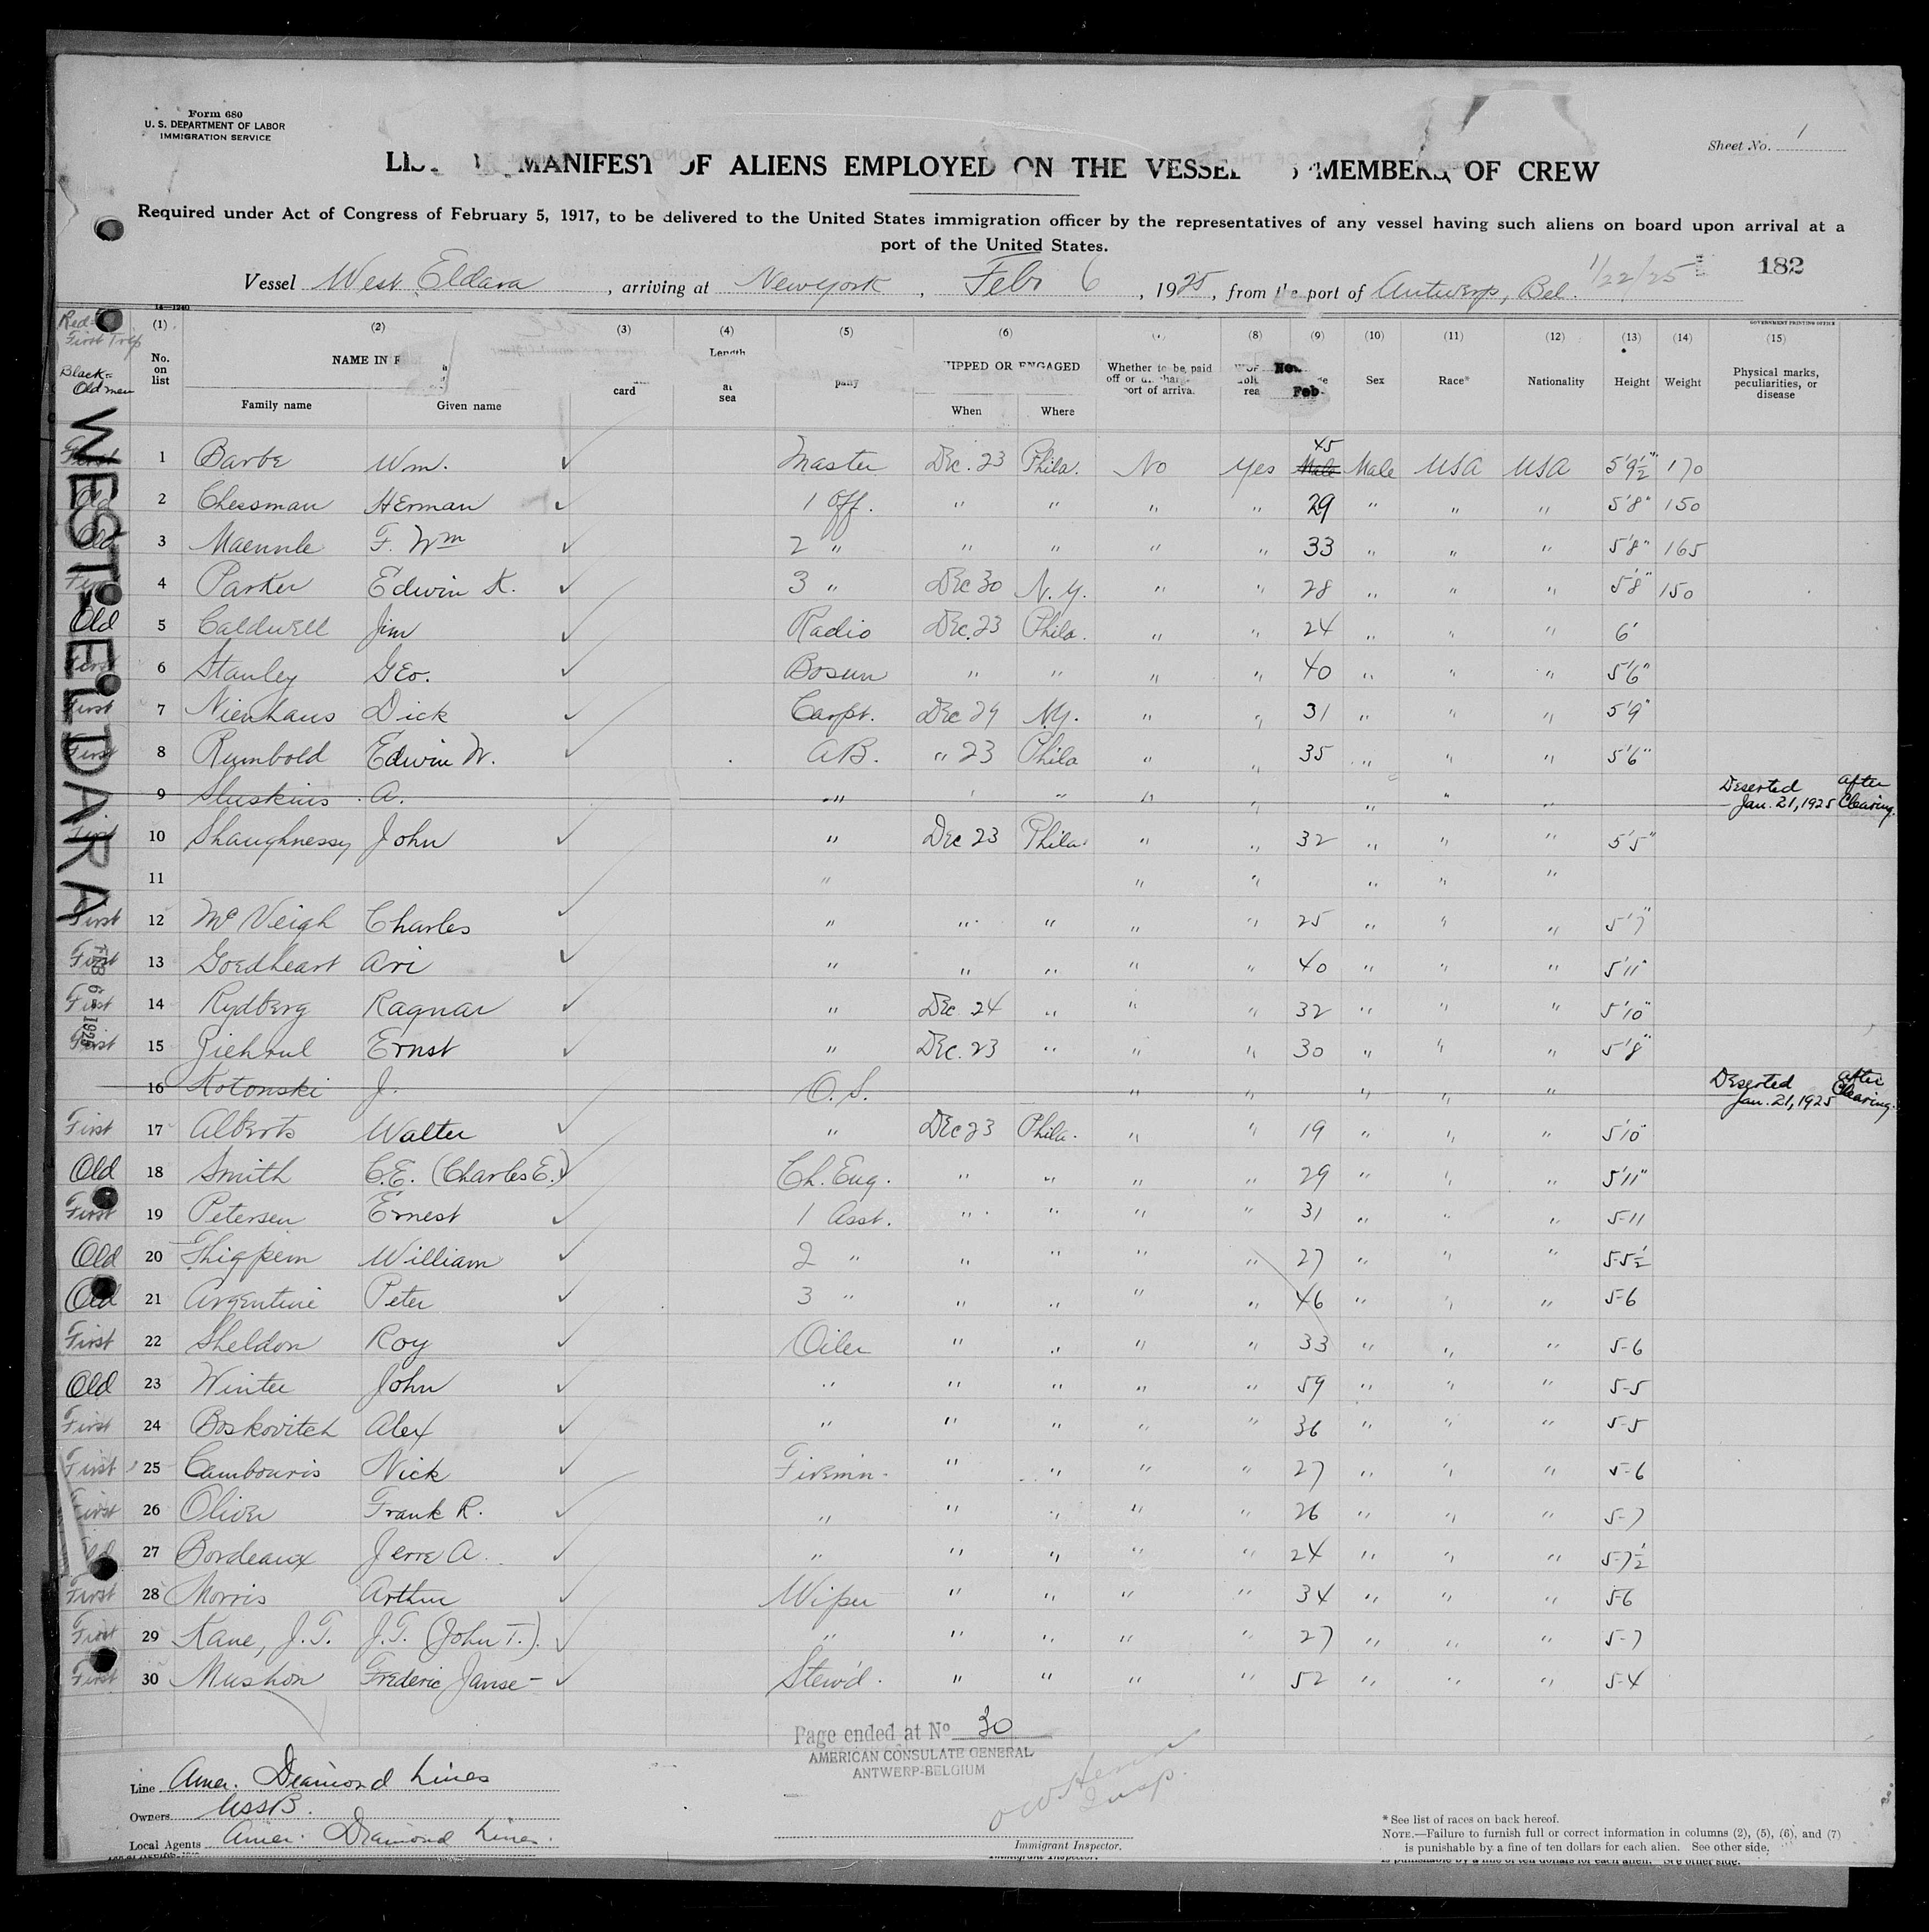 Form 680
U. S. DEPARTMENT OF LABOR
IMMIGRATION SERVICE
Sheet No. 1
MANIFEST OF ALIENS EMPLOYED ON THE VESSEL MEMBERS OF CREW
Required under Act of Congress of February 5, 1917, to be delivered to the United States immigration officer by the representatives of any vessel having such aliens on board upon arrival at a
port of the United States.
Vessel West Eldara, arriving at New York, Feb 6, 1925, from the port of Antwerp, Bel. 1/22/25 182
Red- First Trip
Black= Old men
WEST ELDARA
FEB 6 - 1925
(1) (2) (3) (4) (5) (6) (8) (9) (10) (11) (12) (13) (14) (15)
GOVERNMENT PRINTING OFFICE
No. on list NAME IN card Length at sea pany SHIPPED OR ENGAGED Whether to be paid off or port of arrival Nov. Feb. Sex Race* Nationality Height Weight Physical marks, peculiarities, or disease
Family name Given name When Where
First 1 Barbe Wm. ✓ Master Dec. 23 Phila. No Yes 45 Male Male USA USA 5'9½" 170
Old 2 Chessman Herman ✓ 1 Off. " " " " 29 " " " 5'8" 150
Old 3 Maennle F. Wm ✓ 2 " " " " " 33 " " " 5'8" 165
First 4 Parker Edwin K. ✓ 3 " Dec 30 N.Y. " " 28 " " " 5'8" 150
Old 5 Caldwell Jim ✓ Radio Dec. 23 Phila. " " 24 " " " 6'
First 6 Stanley Geo. ✓ Bosun " " " " 40 " " " 5'6"
First 7 Nienhaus Dick ✓ Carpt. Dec 29 N.Y. " " 31 " " " 5'9"
First 8 Rumbold Edwin W. ✓ AB. " 23 Phila " " 35 " " " 5'6"
9 Sluskins A. " " " " " " " Deserted after Jan. 21, 1925 Clearing.
First 10 Shaughnessy John ✓ " Dec 23 Phila. " " 32 " " " 5'5"
11 " " " " " "
First 12 McVeigh Charles ✓ " " " " " 25 " " " 5'7"
First 13 Goedheart Ari ✓ " " " " " 40 " " " 5'11"
First 14 Rydberg Ragnar ✓ " Dec. 24 " " " 32 " " " 5'10"
First 15 Ernst ✓ " Dec. 23 " " " 30 " " " 5'8"
16 Kotonski J. O.S. " " " " " Deserted after Jan. 21, 1925 Clearing.
First 17 Alberts Walter ✓ " Dec 23 Phila. " " 19 " " " 5'10"
Old 18 Smith C.E. (Charles E.) ✓ Ch. Eng. " " " " 29 " " " 5'11"
First 19 Petersen Ernest ✓ 1 Asst. " " " " 31 " " " 5-11
Old 20 Thigpem William ✓ 2 " " " " " 27 " " " 5-5½
Old 21 Argentine Peter ✓ 3 " " " " " 46 " " " 5-6
First 22 Sheldon Roy ✓ Oiler " " " " 33 " " " 5-6
Old 23 Winter John ✓ " " " " " 59 " " " 5-5
First 24 Boskovitch Alex ✓ " " " " " 36 " " " 5-5
First 25 Cambouris Nick ✓ Firemn. " " " " 27 " " " 5-6
First 26 Oliver Frank R. ✓ " " " " " 26 " " " 5-7
Old 27 Bordeaux Jerre A. ✓ " " " " " 24 " " " 5-7½
First 28 Morris Arthur ✓ Wiper " " " " 34 " " " 5-6
First 29 Kane, J.T. J.T. (John T.). ✓ " " " " " 27 " " " 5-7
First 30 Mushon Frederic Janse- ✓ Stew'd. " " " " 52 " " " 5-4
Page ended at No 30
AMERICAN CONSULATE GENERAL
ANTWERP-BELGIUM
Line Amer. Diamond Lines
Owners USSB.
Local Agents Amer. Diamond Lines.
Insp.
Immigrant Inspector.
* See list of races on back hereof.
NOTE.—Failure to furnish full or correct information in columns (2), (5), (6), and (7)
is punishable by a fine of ten dollars for each alien. See other side.